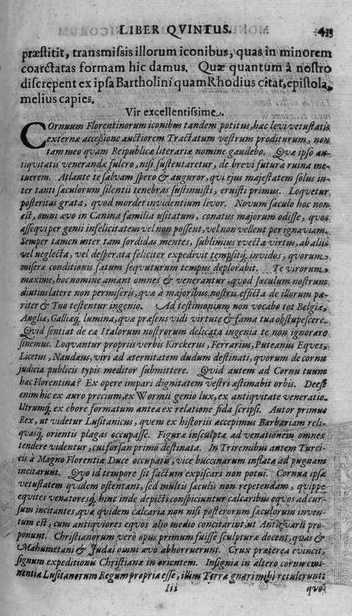 LIBER QVINTUS. 433
præstitit, transmissis illorum iconibus, quas in minorem
coarctatas formam hic damus. Quæ quantum à nostro
discrepent ex ipsa Bartholini quam Rhodius citat, epistola,
melius capies.
Vir excellentissime.
Cornuum Florentinorum iconibus tandem potitus, hac levi vetustatis
externæ accessione auctiorem Tractatum vestrum proditurum, non
tam meo quam Reipublicæ literariæ nomine gaudebo. Qua ipso an-
tiquitatis venerandæ fulcro, nisi sustentaretur, de brevi futura ruina me-
tuerem. Atlante te salvam spero & auguror, qui ejus majestatem solus in-
ter tanti sæculorum silentii tenebras sustinuisti, eruisti primus. Loquetur
posteritas grata, quod mordet invidentium levor. Novum sæculo hoc non
est, omni ævo in Canina familia usitatum, conatus majorum odisse, quos
assequi per genii infelicitatem vel non possent, vel non vellent per ignaviam.
Semper tamen inter tam sordidas mentes, sublimius vecta virtus, ab aliis
vel neglecta, vel desperata feliciter expedivit invidos, quorum
misera conditionis fatum sequuturum tempus deplorabit. Te virorum
maxime, hoc nomine amant omnes & venerantur, quod sæculum nostrum
diutius latere non permiseris, quæ à majoribus nostris efficta de illorum pa-
riter & Tuo testentur ingenio. Ad testimonium non vocabo tot Belgiæ,
Angliæ, Galliæq; lumina, quæ præsens vidi virtute & fama tua obstupescere.
Quid sentiat de ea Italorum nostrorum delicata ingenia te non ignorare
sinemus. Loquantur propriis verbis Kircherus, Ferrarius, Puteanus Eques,
Licetus, Naudæus, viri ad æternitatem dudum destinati, quorum de cornu
judicia publicis typis meditor submittere. Quid autem ad Cornu tuum
hæc Florentina? Ex opere impari dignitatem vestri æstimabis orbis. Deest
enim hic ex auro precium, ex Wormii genio lux, ex antiquitate veneratio.
Utrumq; ex ebore formatum antea ex relatione fida scripsi. Autor primus
Rex, ut videtur Lusitanicus, quem ex historiis accepimus Barbariam reli-
quasq; orientis plagas occupasse. Figura insculpta ad venationem omnes
tendere videntur, cui forsan primo destinata. In Triremibus autem Turci-
cis à Magno Florentiæ Duce occupatis, vice buccinarum inflata ad pugnam
incitarunt. Quo id tempore sit factum expiscari non potui. Cornua ipsa
vetustatem quidem ostentant, sed multis sæculis non repetendam, quippe
equites venatoresq; hinc inde depicti conspiciuntur calcaribus equos ad cur-
sum incitantes, quæ quidem calcaria non nisi posteriorum sæculorum inven-
tum est, cum antiquiores equos alio medio concitarint, ut Antiquarii pro-
ponunt. Christianorum vero opus primum fuisse sculptura docent, quas &
Mahumetani & Judæi omni ævo abhorruerunt. Crux præterea evincit,
signum expeditionis Christianæ in orientem. Insignia in altero cornu cui-
nentia Lusitanorum Regum propria esse, illum Terræ gnari mihi retulerunt
Iii quos